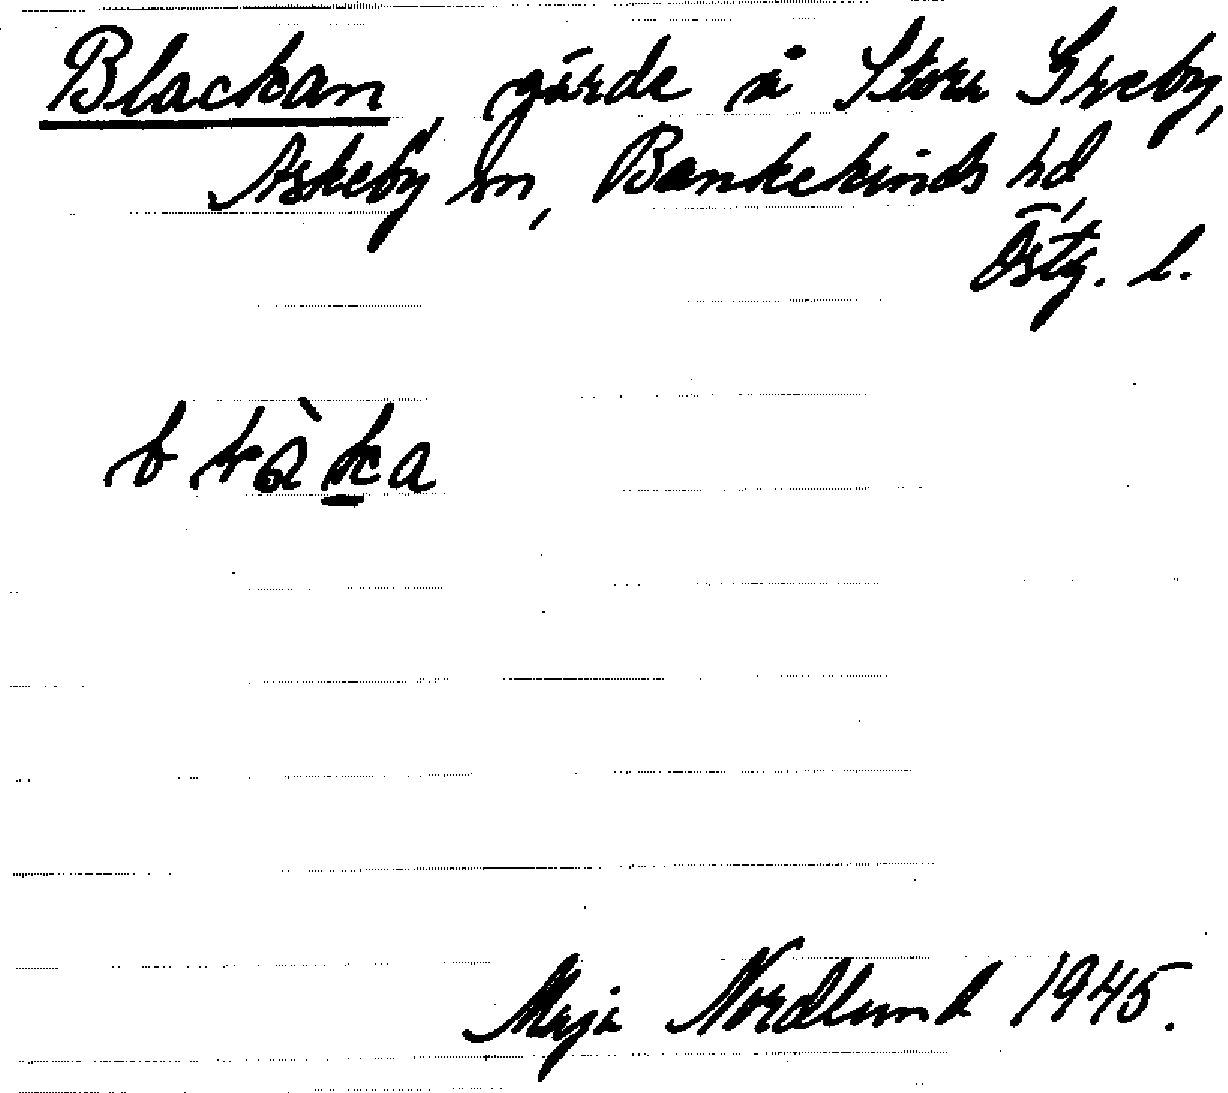 Blackan gärde å Stora Greby,
Askeby sn, Bankekinds hd
Östg. l.
Maja Nordlund 1945.